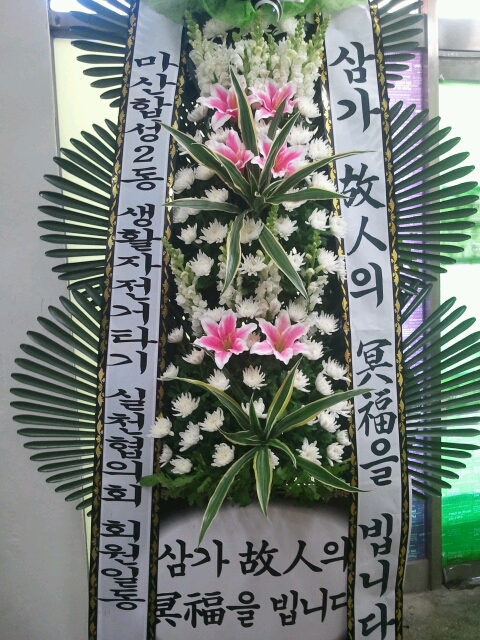 마산합성2동 생활자전거타기 실천협의회 회원일동
삼가 故人의 冥福을 빕니다
삼가 故人의
冥福을 빕니다